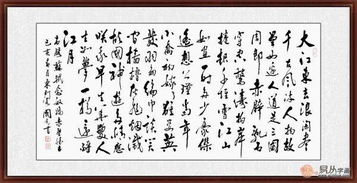 大江东去浪淘尽
千古风流人物故
垒西边人道是三国
周郎赤壁乱石
穿空惊涛拍岸
卷起千堆雪江山
如画一时多少豪杰
遥想公瑾当年
小乔初嫁了雄姿英
发羽扇纶巾谈笑
间樯橹灰飞烟灭
故国神游多情应
笑我早生华发人
生如梦一樽还酹
江月
易从字画